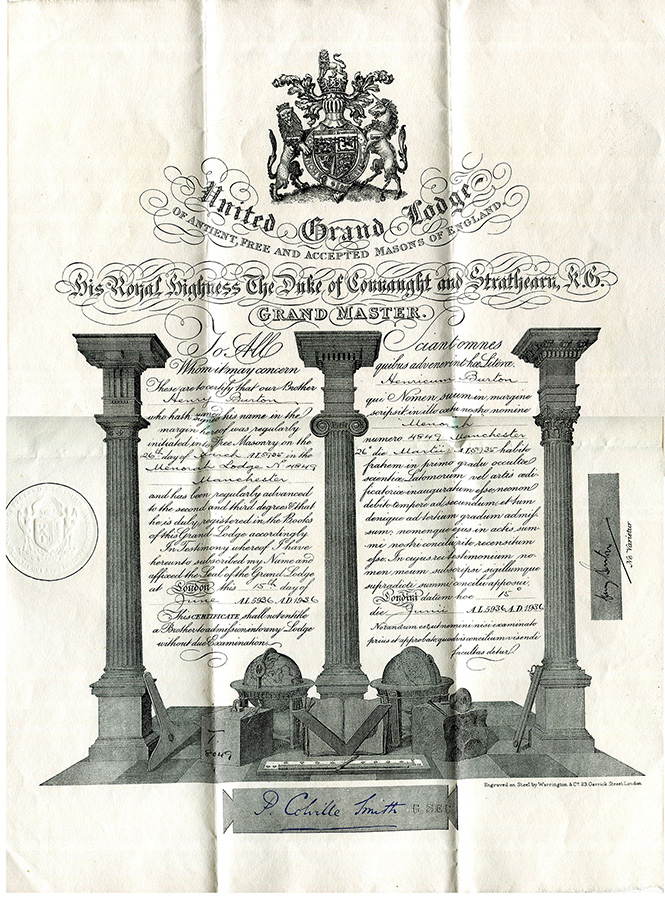 United Grand Lodge
OF ANTIENT, FREE AND ACCEPTED MASONS OF ENGLAND.
His Royal Highness The Duke of Connaught and Strathearn, K.G.
GRAND MASTER.
To All
Whom it may concern
These are to certify that our Brother
Henry Burton
who hath signed his name in the
margin hereof was regularly
initiated into Free Masonry on the
26th day of March A.L.5935 in the
Menorah Lodge No 4849
Manchester
and has been regularly advanced
to the second and third degrees & that
he is duly registered in the Books
of this Grand Lodge accordingly.
In Testimony whereof I have
hereunto subscribed my Name and
affixed the Seal of the Grand Lodge
at London this 15th day of
June A.L.5936. A.D.1936.
This CERTIFICATE shall not entitle
a Brother to admission into any Lodge
without due Examination.
Sciant omnes
quibus advenerint hæ Literæ.
Henricum Burton
qui Nomen suum in margine
scripsit, in illo cœtu nostro, nomine
Menorah
numero 4849 Manchester
26 die Martii A.L.5935 habito
fratrem in primo gradu occultæ
scientiæ Latomorum vel artis ædi-
ficatoriæ inauguratum esse, necnon
debito tempore ad secundum, et tum
denique ad tertium gradum admis-
sum, nomenque ejus in actis, sum-
mi nostri concilii rite recensitum
esse. In cujus rei testimonium no-
men meum subscripsi sigillumque
supradicti summi concilii apposui.
Londini datum hoc 15°
die Junii A.L.5936. A.D.1936.
Notandum est ut nemini nisi examinato
prius et approbato, quodvis concilium visendi
facultas detur.
Ne Varietur
8049
P. Colville Smith G. SEC
Engraved on Steel by Warrington & Co. 23, Garrick Street London